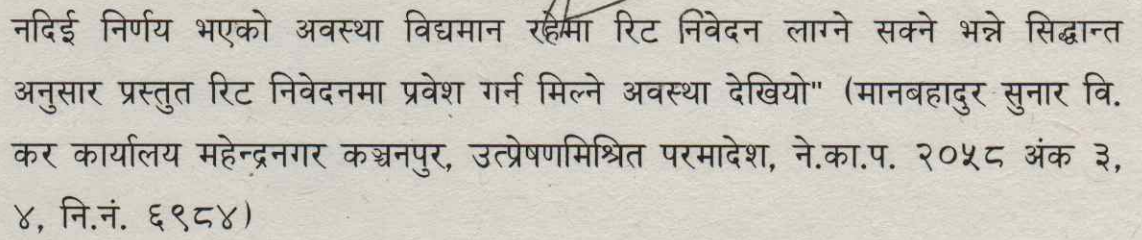 नदिई निर्णय भएको अवस्था विद्यमान रहेमा रिट निवेदन लाग्ने सक्ने भन्ने सिद्धान्त
अनुसार प्रस्तुत रिट निवेदनमा प्रवेश गर्न मिल्ने अवस्था देखियो" (मानबहादुर सुनार वि.
कर कार्यालय महेन्द्रनगर कञ्चनपुर, उत्प्रेषणमिश्रित परमादेश, ने.का.प. २०५८ अंक ३,
४, नि.नं. ६९८४)